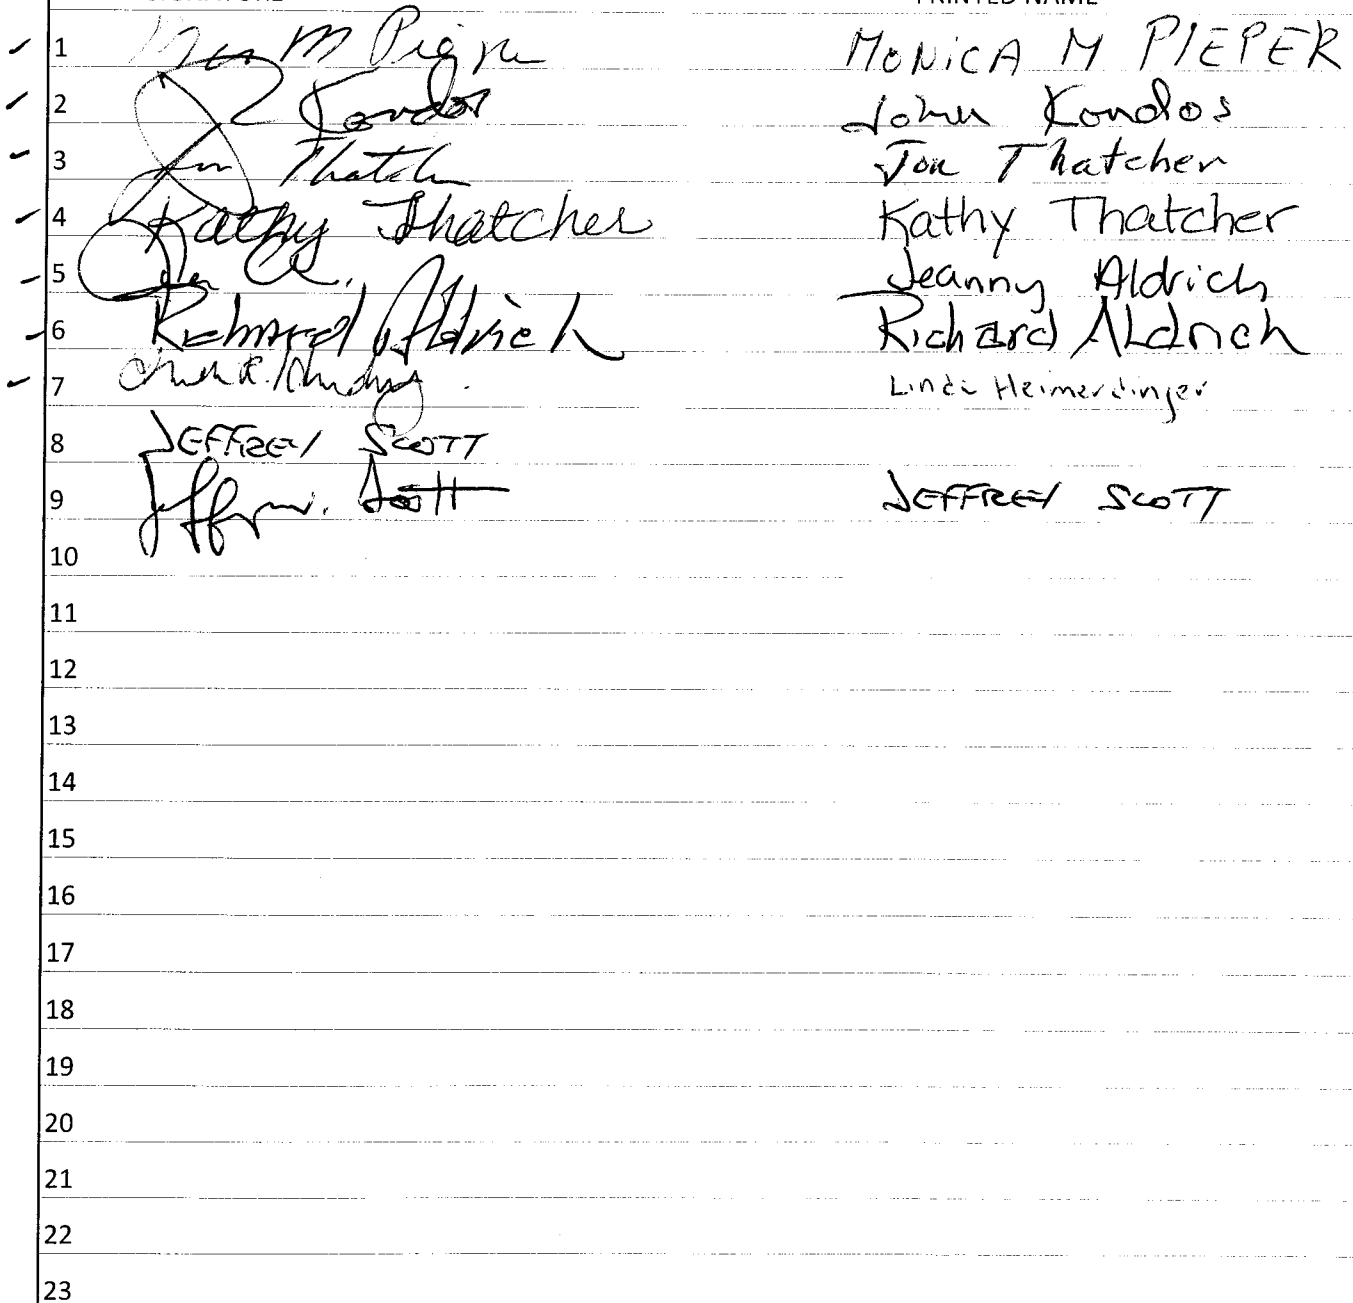 PRINTED NAME
1 M Pieper MONICA M PIEPER
2 Kondos John Kondos
3 Jon Thatch Jon Thatcher
4 Kathy Thatcher Kathy Thatcher
5 Jeanny Aldrich
6 Richard Aldrich Richard ALdrich
7 Linda Heimerdinger
8 JEFFREY SCOTT
9 Jeffrey Scott JEFFREY SCOTT
10
11
12
13
14
15
16
17
18
19
20
21
22
23